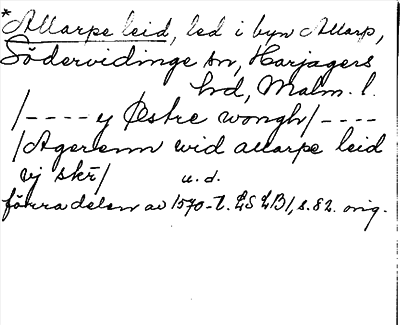 *Allarpe leid, led i byn Allarp,
Södervidinge sn, Harjagers
hd, Malm. l.
/---- y Østre wongh/----
/Agerenn wid allarpe leid
vj skr/ u. d.
förra delen av 1570-t. LSLB1, s. 82. orig.